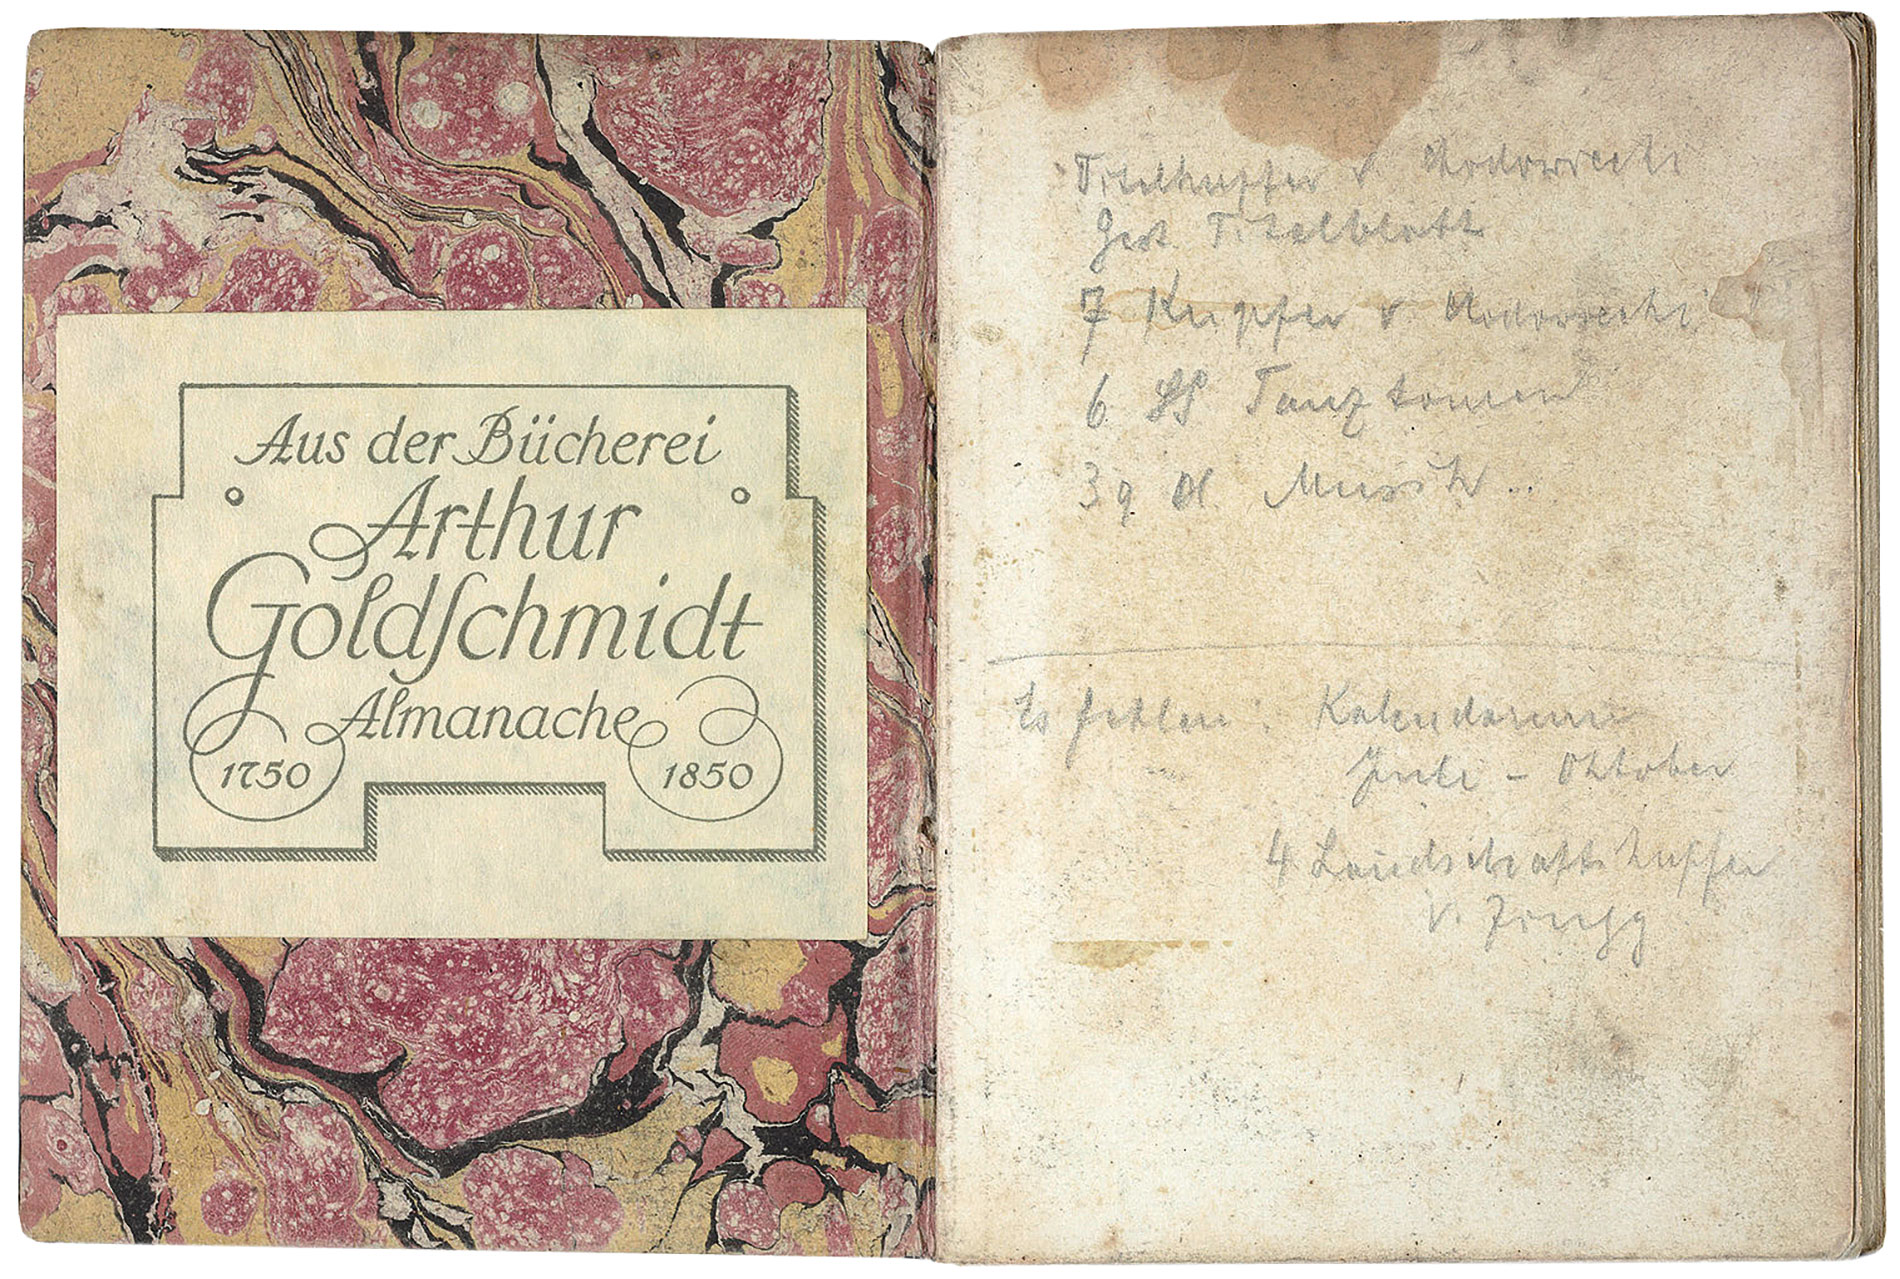 Aus der Bücherei
Arthur
Goldſchmidt
Almanache
1750 1850
Titelkupfer v. Chodowiecki
Gest. Titelblatt
7 Kupfer v. Chodowiecki
6 SS. Tanztouren
3 g Bl. Musik
Es fehlen: Kalendarium
Juli - Oktober
4 Landschaftskupfer
v.